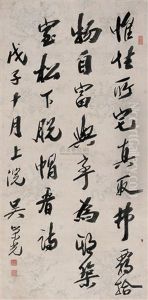 惟性所宅真取弗羈拾
物自富與率為期築
室松下脫帽看詩
戊子十月上浣吳榮光